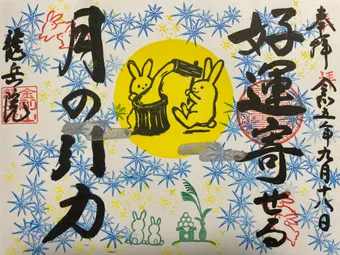 奉拝 令和五年九月十八日
好運寄せる
月の引力